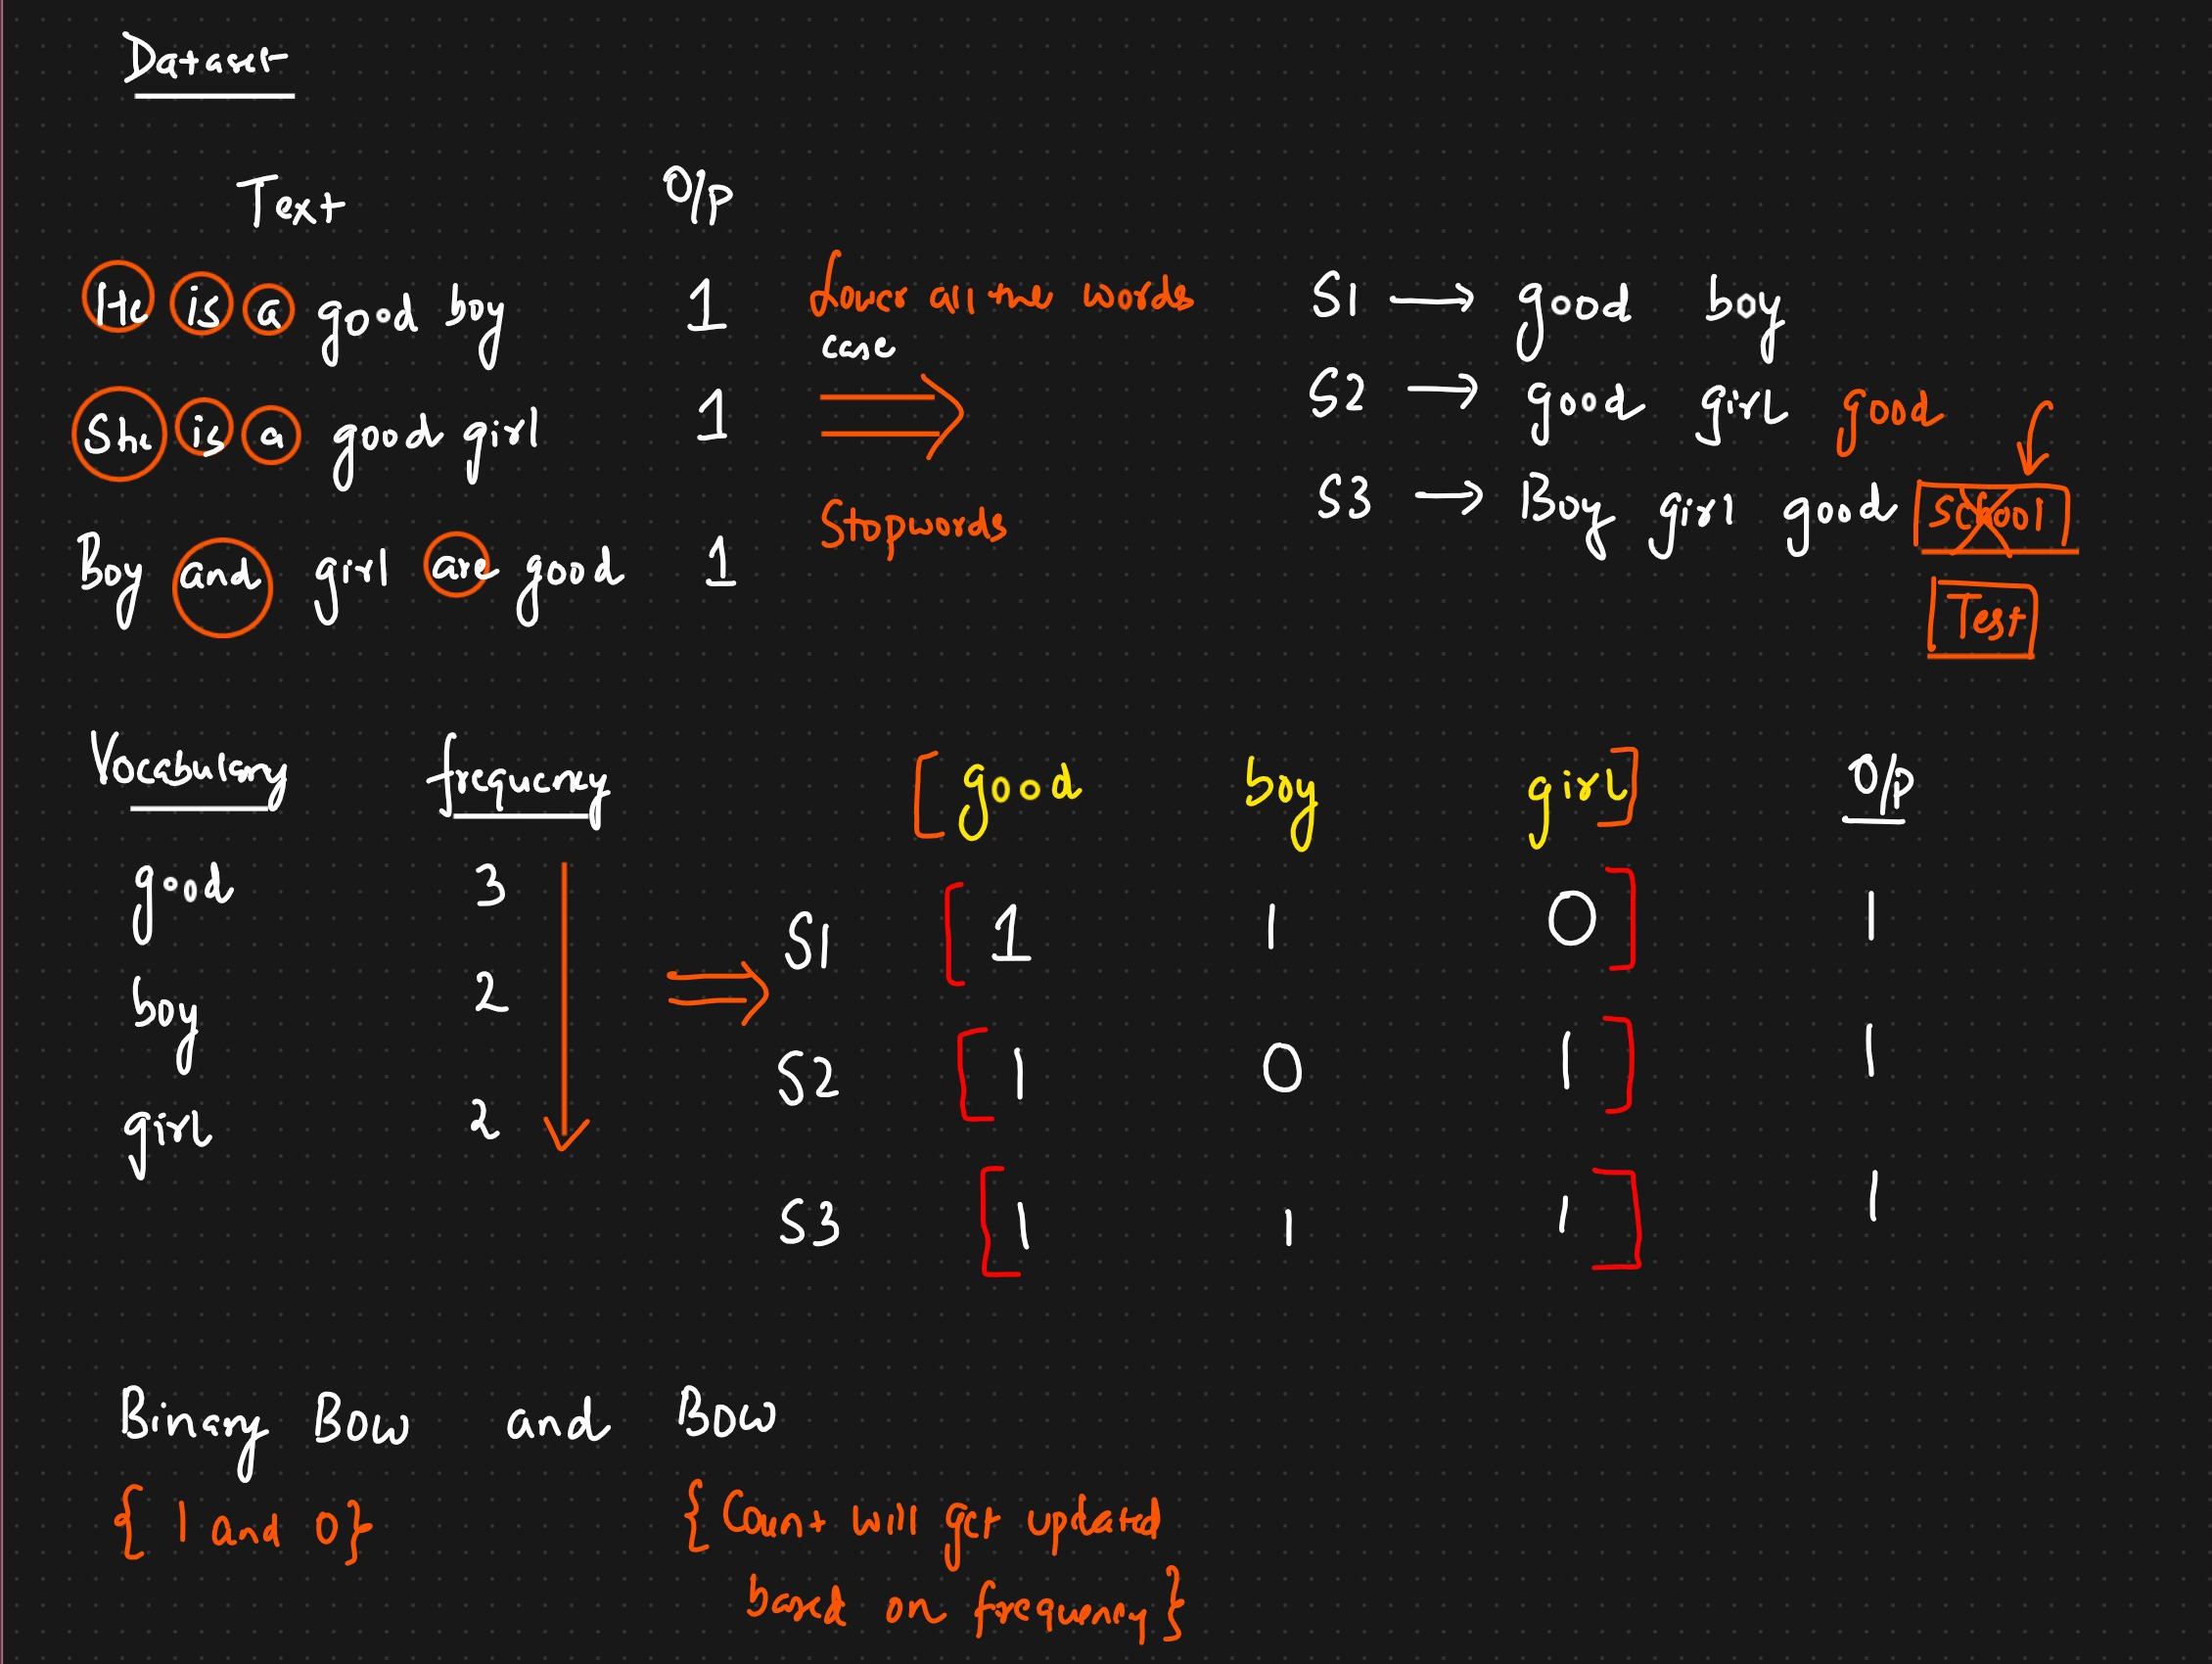 Dataset
Text O/P
He is a good boy 1
She is a good girl 1
Boy and girl are good 1
Lower all the words
case
Stopwords
S1 → good boy
S2 → good girl good
S3 → Boy girl good School
Test
Vocabulary frequency
good 3
boy 2
girl 2
[good boy girl] O/P
S1 [1 1 0] 1
S2 [1 0 1] 1
S3 [1 1 1] 1
Binary BOW and BOW
{1 and 0} {Count will get updated
based on frequency}